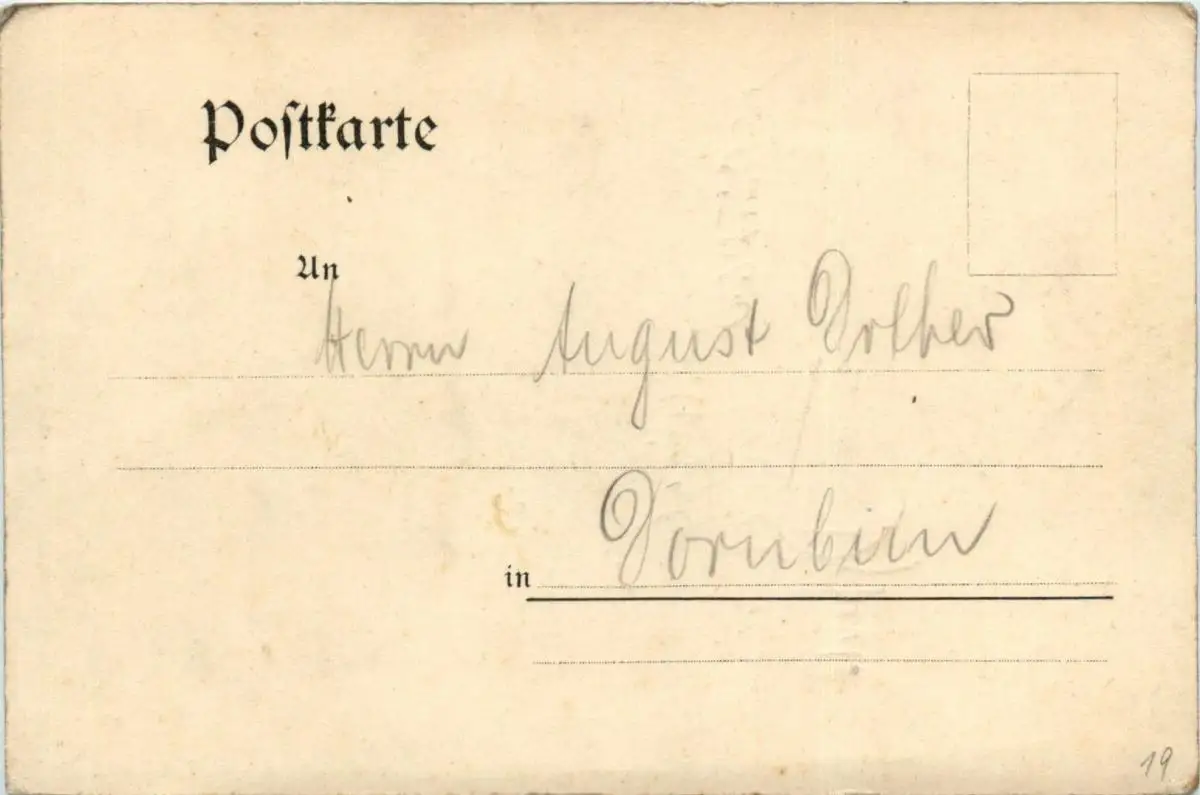 Postkarte
An
Herrn August
in Dornbirn
19